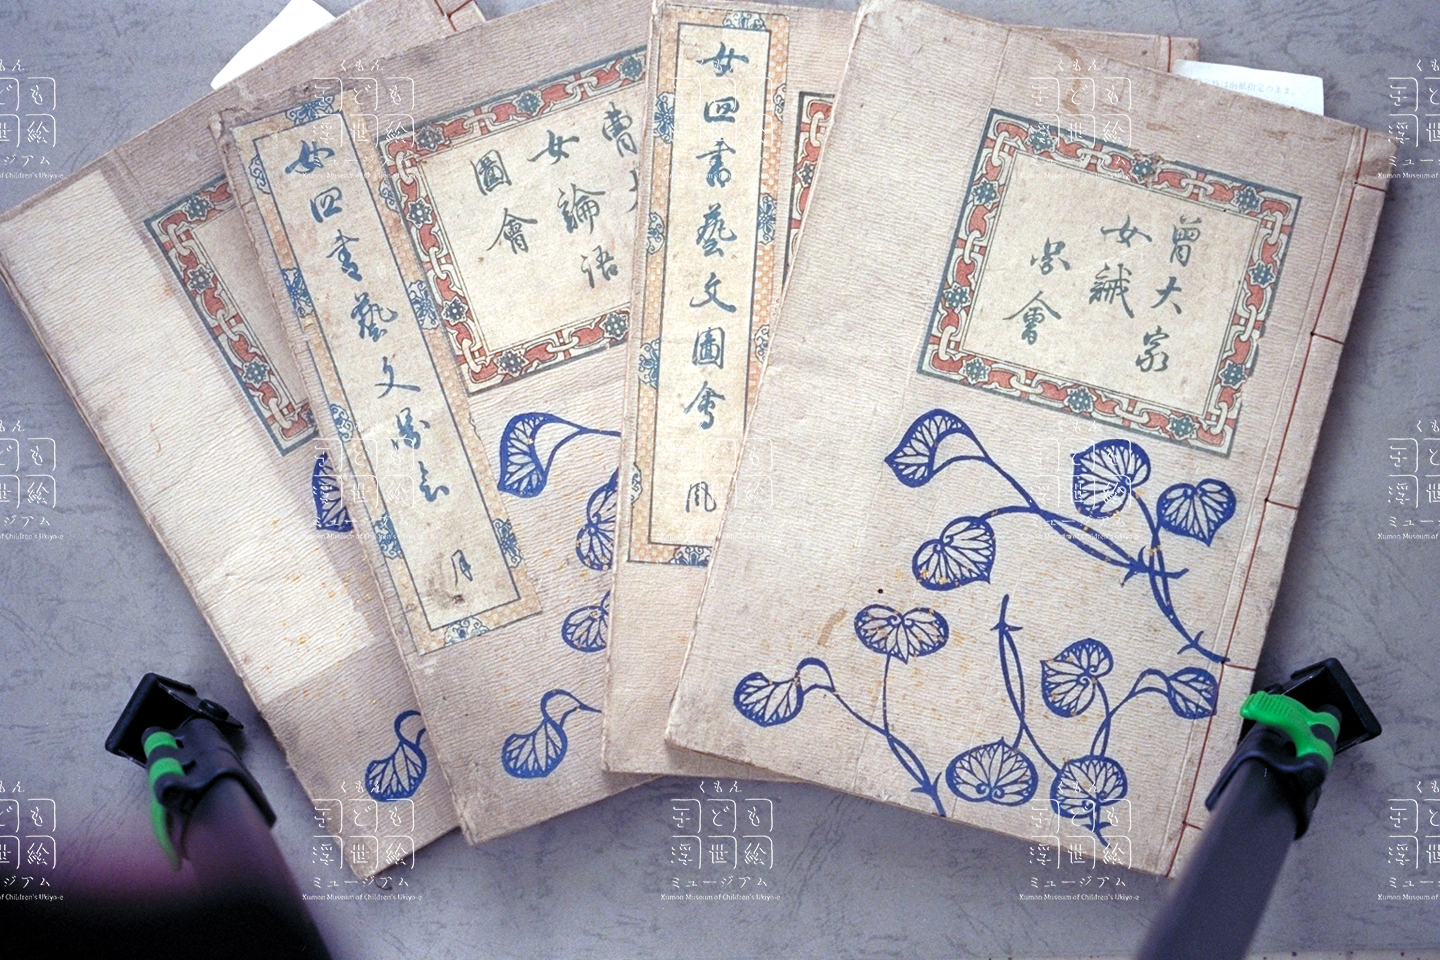 曹大家
女誡
圖會
女四書藝文圖會 風
曹大
女論語
圖會
女四書藝文圖會 月
くもん
子ども
浮世絵
ミュージアム
Kumon Museum of Children's Ukiyo-e